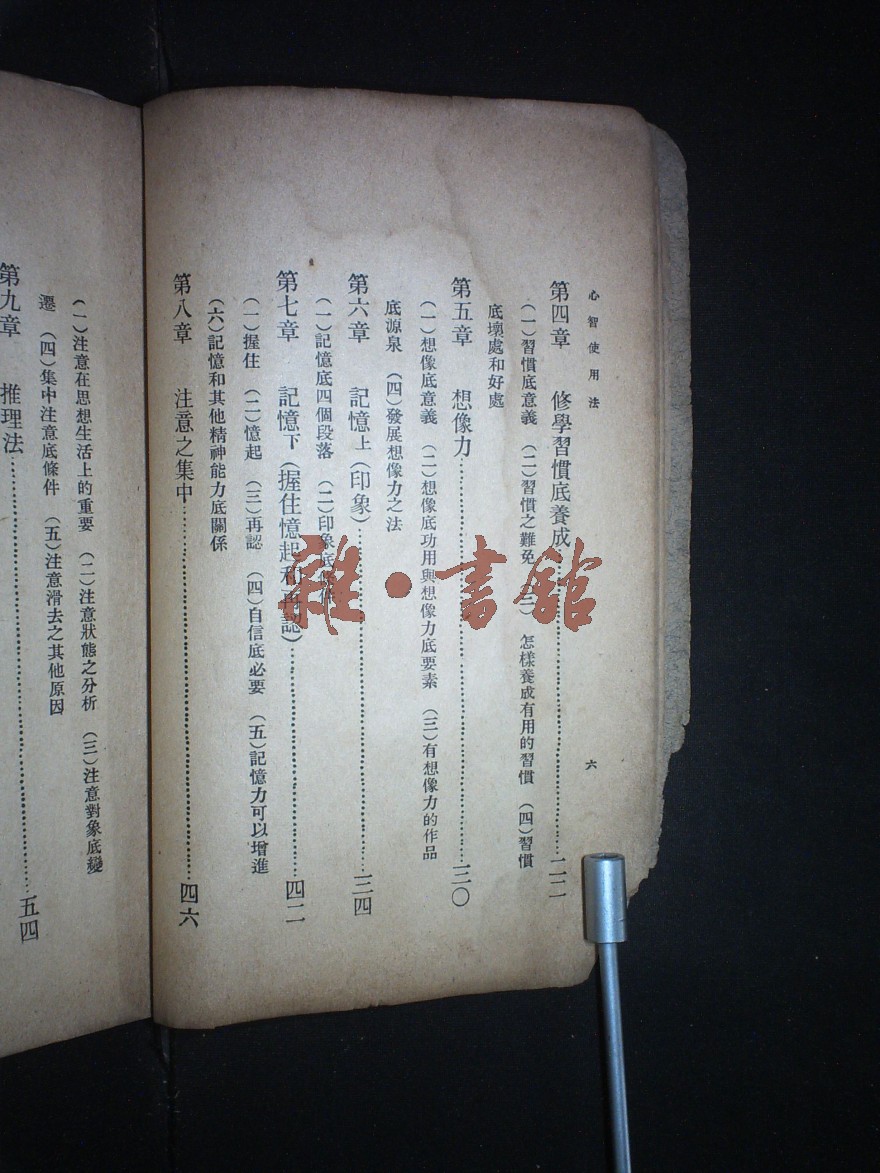 心智使用法 六
第四章 修學習慣底養成……二二
(一)習慣底意義 (二)習慣之難免 (三) 怎樣養成有用的習慣 (四)習慣
底壞處和好處
第五章 想像力……三〇
(一)想像底意義 (二)想像底功用與想像力底要素 (三)有想像力的作品
底源泉 (四)發展想像力之法
第六章 記憶上(印象)……三四
(一)記憶底四個段落 (二)印象底條件
第七章 記憶下(握住憶起和再認)……四二
(一)握住 (二)憶起 (三)再認 (四)自信底必要 (五)記憶力可以增進
(六)記憶和其他精神能力底關係
第八章 注意之集中……四六
(一)注意在思想生活上的重要 (二)注意狀態之分析 (三)注意對象底變
遷 (四)集中注意底條件 (五)注意滑去之其他原因
第九章 推理法……五四
雜·書館